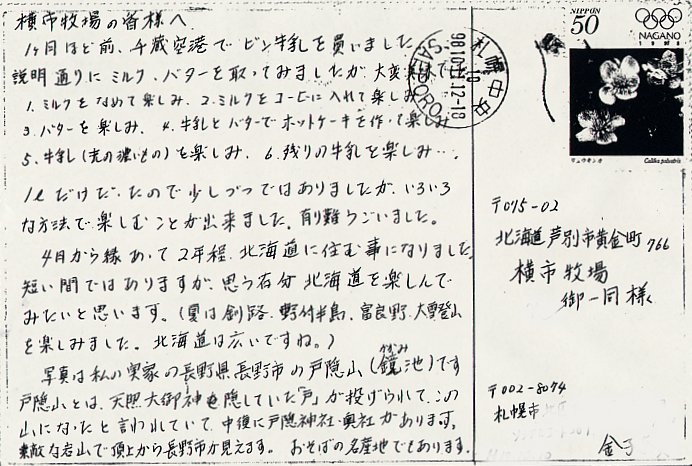 横市牧場の皆様へ
1ヶ月ほど前、千歳空港でビン牛乳を買いました。
説明通りにミルク、バターを取ってみましたが、大変美味でした
1. ミルクをなめて楽しみ、2. ミルクをコーヒーに入れて楽しみ
3. バターを楽しみ、4. 牛乳とバターでホットケーキを作って楽しみ
5. 牛乳(元の濃いもの)を楽しみ、6. 残りの牛乳を楽しみ…。
1ℓだけだったので少しづつではありましたが、いろいろ
な方法で楽しむことが出来ました。有り難うございました。
4月から縁あって2年程、北海道に住む事になりました。
短い間ではありますが、思う存分北海道を楽しんで
みたいと思います。(夏は釧路、野付半島、富良野、大雪登山
を楽しみました。北海道は広いですね。)
写真は私の実家の長野県長野市の戸隠山(鏡池)です
かがみ
戸隠山とは、天照大御神を隠していた「戸」が投げられて、この
山になったと言われていて、中腹に戸隠神社・奥社があります。
素敵な岩山で頂上から長野市が見えます。おそばの名産地でもあります。
札幌中央
98.10.11
12-18
SAPPORO
NIPPON
50
NAGANO
1998
リュウキンカ
Caltha palustris
〒075-02
北海道芦別市黄金町766
横市牧場
御一同様
〒002-8074
札幌市
金子